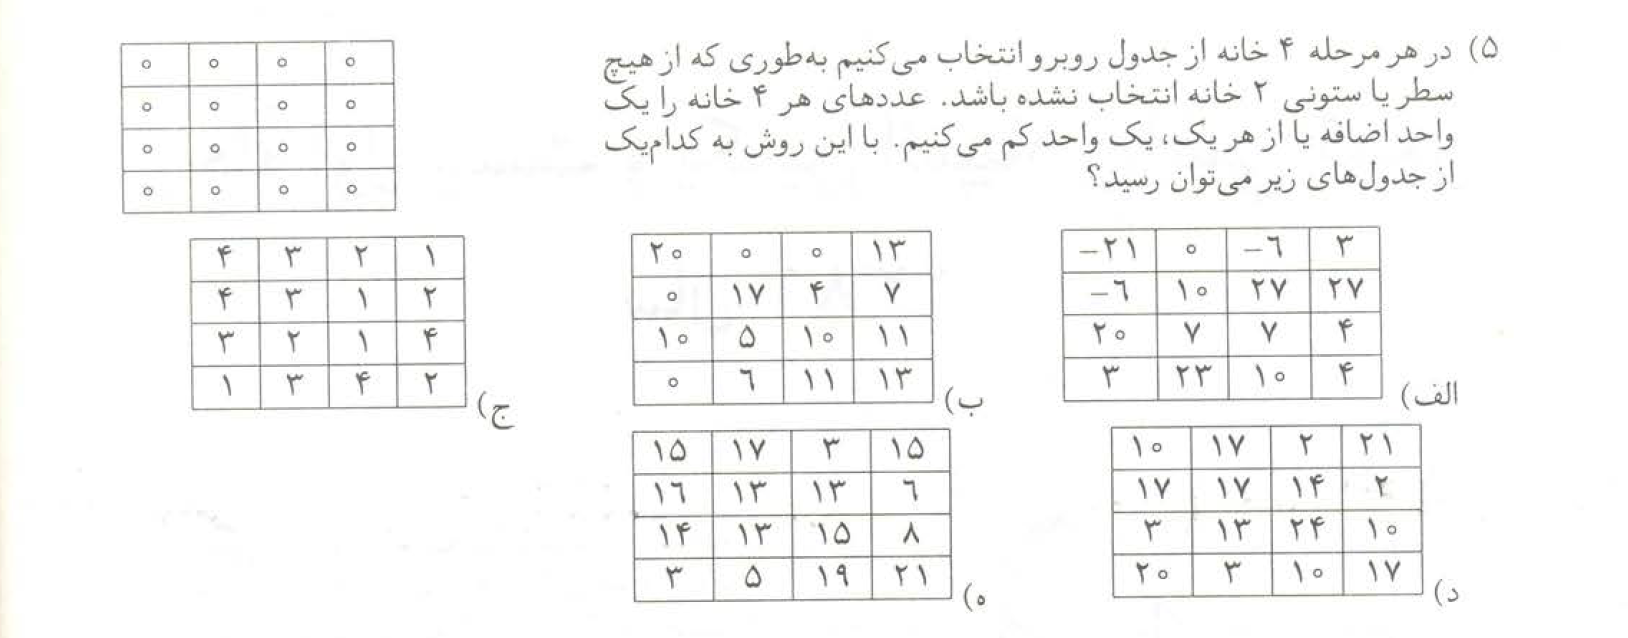 ۵) در هر مرحله ۴ خانه از جدول روبرو انتخاب می‌کنیم به‌طوری که از هیچ
سطر یا ستونی ۲ خانه انتخاب نشده باشد. عددهای هر ۴ خانه را یک
واحد اضافه یا از هر یک، یک واحد کم می‌کنیم. با این روش به کدام‌یک
از جدول‌های زیر می‌توان رسید؟
۰ ۰ ۰ ۰
۰ ۰ ۰ ۰
۰ ۰ ۰ ۰
۰ ۰ ۰ ۰
الف)
−۲۱ ۰ −۶ ۳
−۶ ۱۰ ۲۷ ۲۷
۲۰ ۷ ۷ ۴
۳ ۲۳ ۱۰ ۴
ب)
۲۰ ۰ ۰ ۱۳
۰ ۱۷ ۴ ۷
۱۰ ۵ ۱۰ ۱۱
۰ ۶ ۱۱ ۱۳
ج)
۴ ۳ ۲ ۱
۴ ۳ ۱ ۲
۳ ۲ ۱ ۴
۱ ۳ ۴ ۲
د)
۱۰ ۱۷ ۲ ۲۱
۱۷ ۱۷ ۱۴ ۲
۳ ۱۳ ۲۴ ۱۰
۲۰ ۳ ۱۰ ۱۷
ه)
۱۵ ۱۷ ۳ ۱۵
۱۶ ۱۳ ۱۳ ۶
۱۴ ۱۳ ۱۵ ۸
۳ ۵ ۱۹ ۲۱